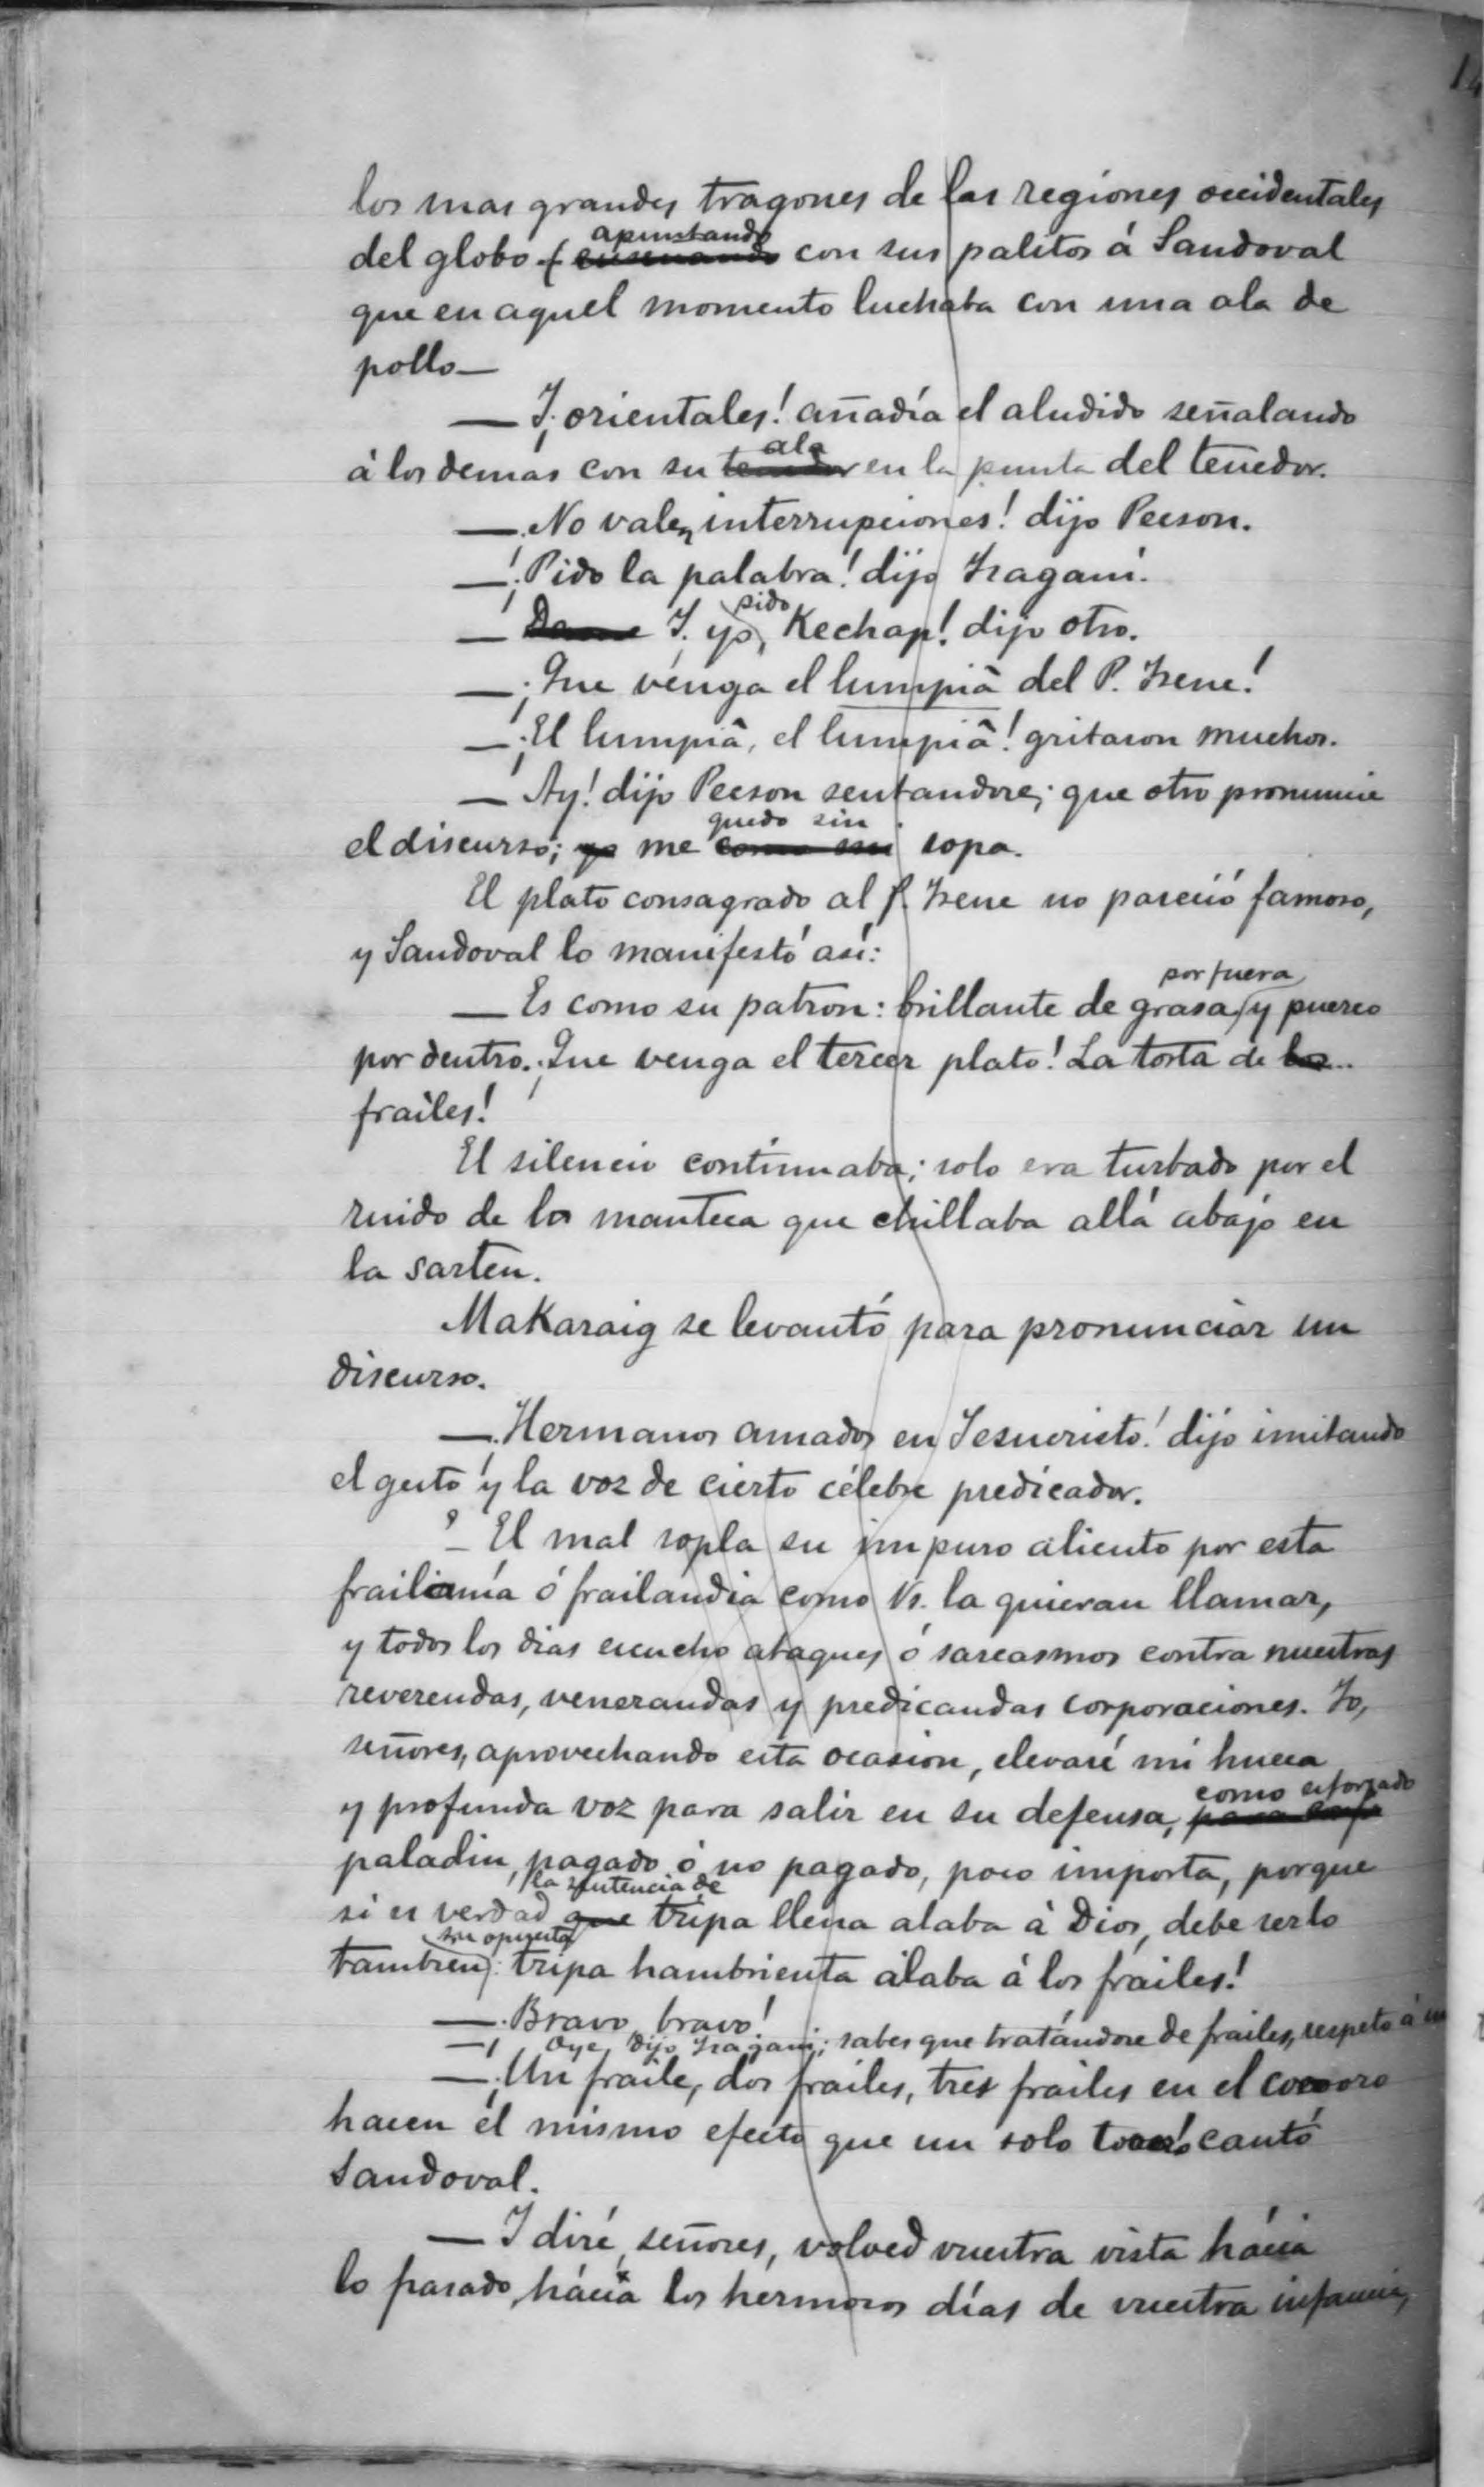 los mas grandes tragones de las regiones occidentales
apuntando
del globo ( enseñando con sus palitos á Sandoval
que en aquel momento luchaba con una ala de
pollo—
— I ¡orientales! añadía el aludido señalando
ala
á los demas con su tenedor en la punta del tenedor.
— ¡No valen interrupciones! dijo Pecson.
— ¡Pido la palabra! dijo Isagani.
pido
— Dame I yo, Kechap! dijo otro.
— ¡Que venga el lumpiâ del P. Irene!
— ¡El lumpiâ, el lumpiâ! gritaron muchos.
— Ay! dijo Pecson sentandose; que otro pronuncie
quedo sin
el discurso; yo me como mi sopa.
El plato consagrado al P. Irene no pareció famoso,
y Sandoval lo manifestó así:
por fuera
— Es como su patron: brillante de grasa y puerco
por dentro. ¡Que venga el tercer plato! La torta de los...
frailes!
El silencio continuaba; solo era turbado por el
ruido de la manteca que chillaba allá abajo en
la sarten.
Makaraig se levantó para pronunciar un
discurso.
— ¡Hermanos amados en Jesucristo! dijo imitando
el gesto y la voz de cierto célebre predicador.
El mal sopla su impuro aliento por esta
frailianía ó frailandia como Vs. la quieran llamar,
y todos los dias escucho ataques ó sarcasmos contra nuestras
reverendas, venerandas y predicandas corporaciones. Yo,
señores, aprovechando esta ocasion, elevaré mi hueca
como esforzado
y profunda voz para salir en su defensa,
paladin, pagado ó no pagado, poco importa, porque
la sentencia de
si es verdad que tripa llena alaba á Dios, debe serlo
su opuesta
tambien: tripa hambrienta alaba á los frailes!
— ¡Bravo, bravo!
— Oye, dijo Isagani; sabes que tratándose de frailes, respeto á
— ¡Un fraile, dos frailes, tres frailes en el coro
hacen el mismo efecto que un solo toro! cantó
Sandoval.
— I diré, señores, volved vuestra vista hácia
lo pasado, hácia los hermosos días de vuestra infancia,